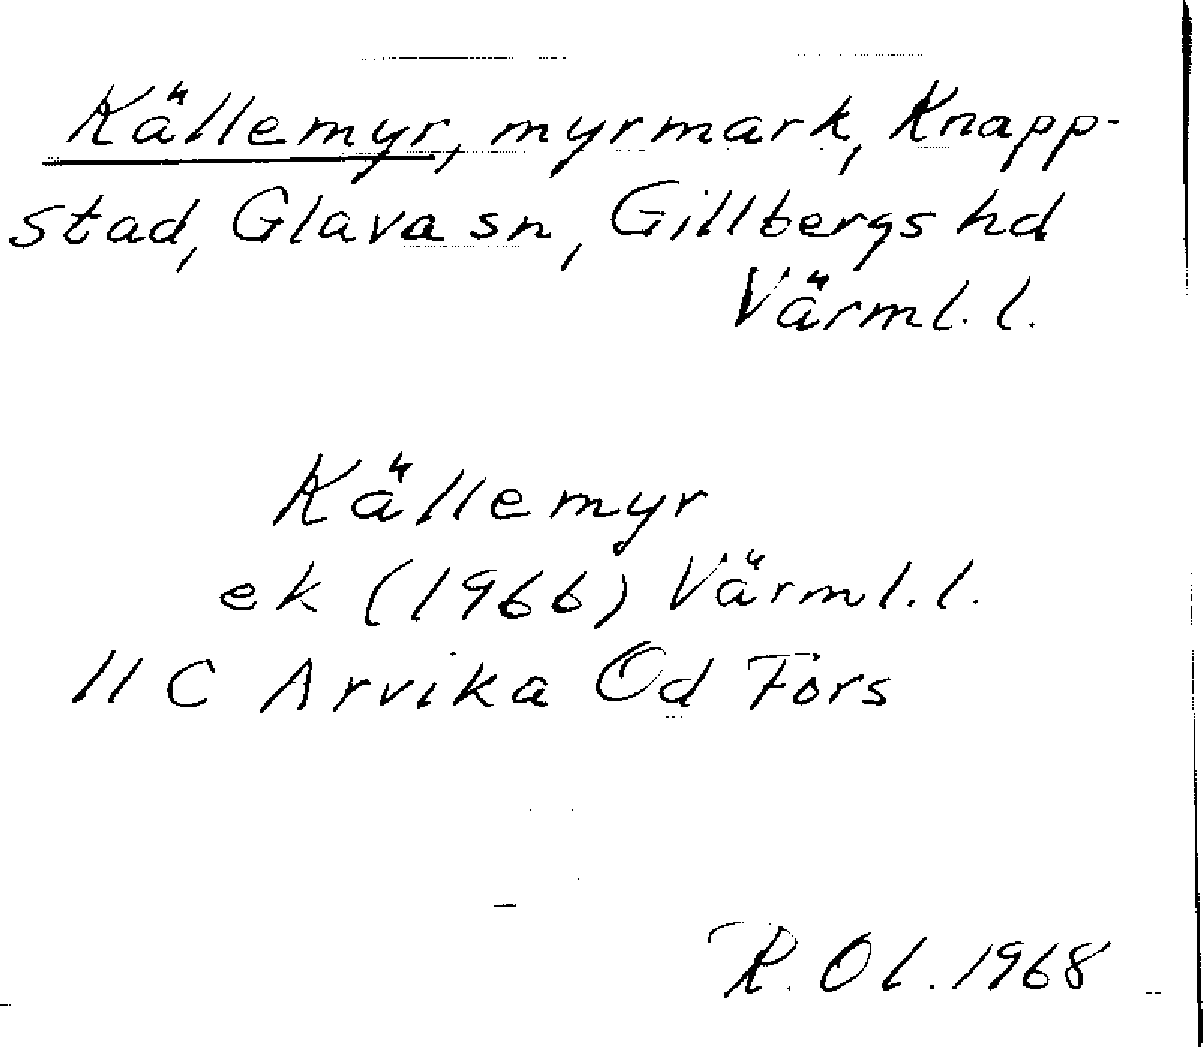 Källemyr, myrmark, Knapp-
stad, Glava sn, Gillbergs hd
Värml. l.
Källemyr
ek (1966) Värml. l.
11 C Arvika Od Fors
R. Ol. 1968